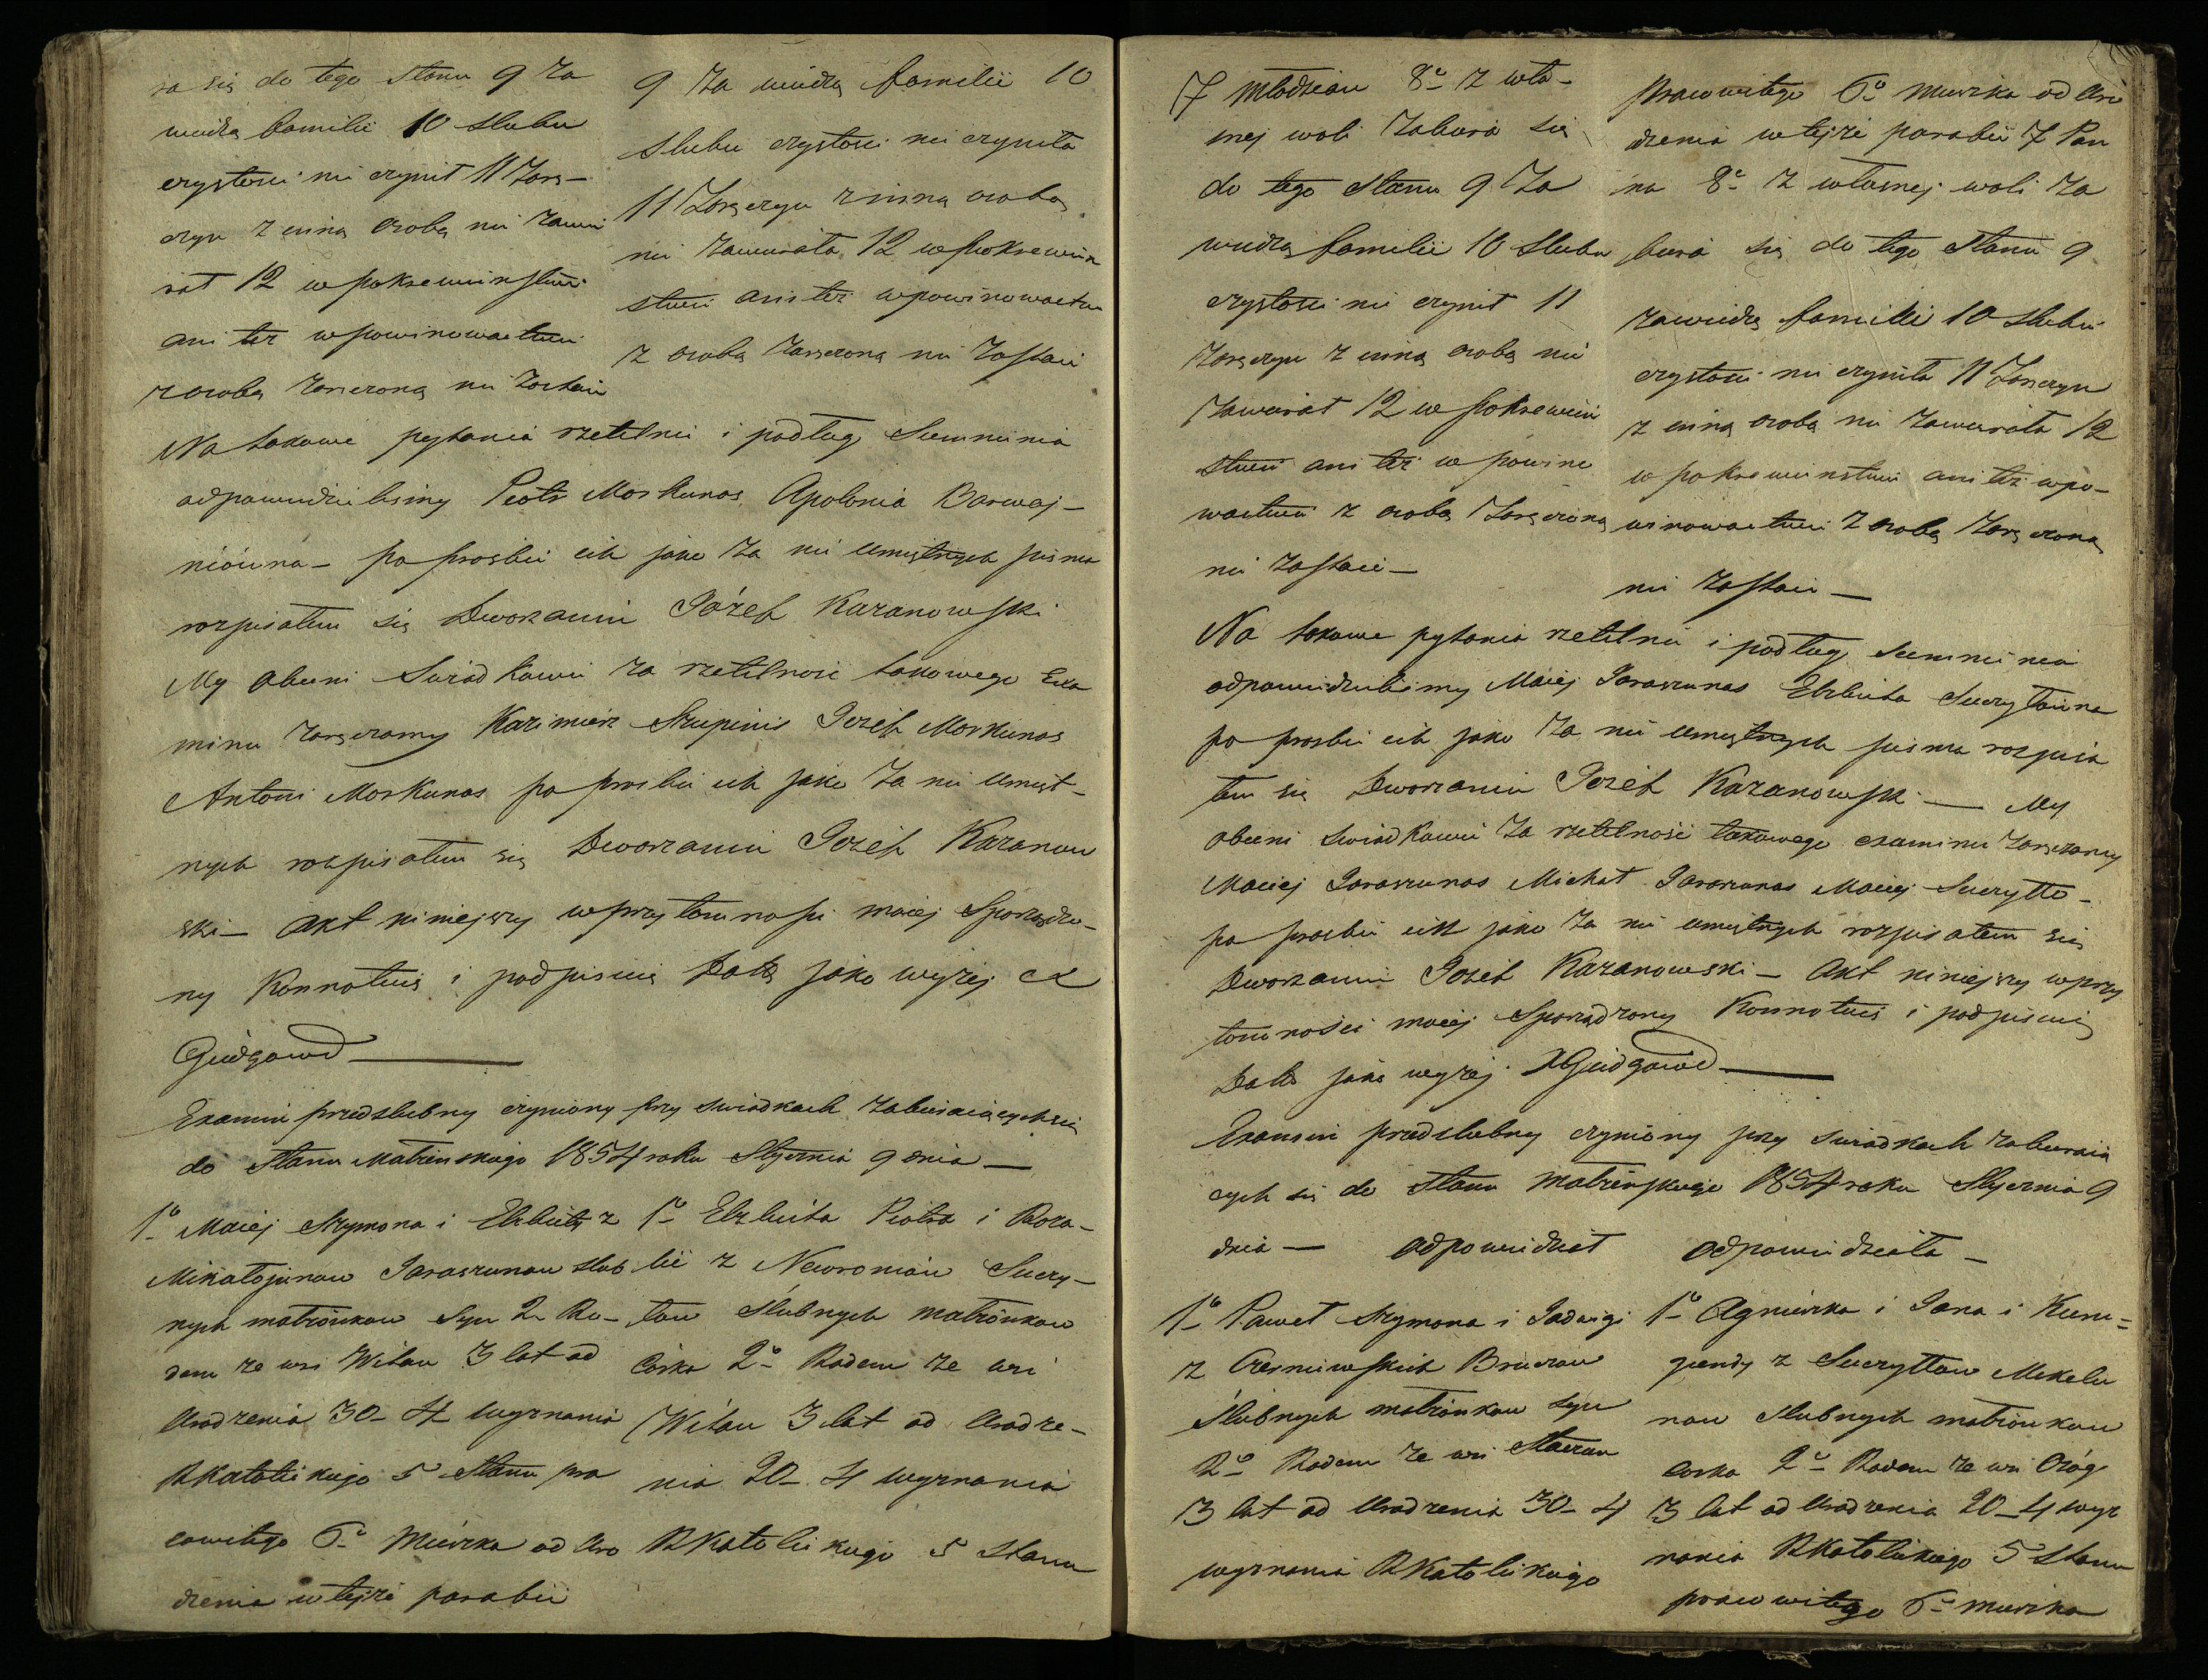 ra się do tego Stanu 9 Za
wiedzą familii 10 Slubu
czystosci nie czynił 11 Zarę-
czyn z inną osobą nie zawie
rał 12 w pokrewienstwie
ani też w powinowactwie
z osobą zaręczoną nie zostaie
9 Za wiedzą familii 10
Slubu czystosci nie czyniła
11 Zaręczyn z inną osobą
nie zawierała 12 w pokrewien
stwie ani też w powinowactwie
z osobą zaręczoną nie zostaie
Na takowe pytania rzetelnie i podług Sumnienia
odpowiedzielismy Piotr Moskunas Apolonia Barwaj-
niówna - po prosbie ich jako za nie umiętnych pisma
rozpisałem się Dworzanin Józef Kazanowski
My obecni Swiadkowie za rzetelnosc takowego Exa
minu zaręczamy Kazimierz Stupinis Jozef Moskunas
Antoni Moskunas po prosbie ich jako za nie umięt-
nych rozpisałem się Dworzanin Jozef Kazanow
ski - Akt niniejszy w przytomnosci moiej Sporządzo-
ny Konnotuię i podpisuię Datą jako wyżej X
Giedgowd
Examin przedslubny czyniony przy swiadkach zabieraiącychsię
do Stanu Małżenskiego 1854 roku Stycznia 9 dnia
1o Maciej Szymona i Elzbiety z
Mikałojunow Jaraszunow slub
nych małżonkow Syn 2 Ro-
dem ze wsi Witow 3 lat od
Urodzenia 30 - 4 Wyznania
RKatolickiego 5 Stanu pra
cowitego 6o Mieszka od Uro
dzenia w tejże parafii
1o Elzbieta Piotra i Roza-
lii z Naworoniow Suczy-
tow Slubnych małżonkow
Corka 2o Rodem ze wsi
Witow 3 lat od Urodze-
nia 20 - 4 Wyznania
RKatolickiego 5 Stanu
7 Młodzian 8o z wła-
snej woli zabiera się
do tego Stanu 9 Za
wiedzą familii 10 Slubu
czystosci nie czynił 11
Zaręczyn z inną osobą nie
zawierał 12 w pokrewien
stwie ani też w powino
wactwie z osobą zaręczoną
nie zostaie -
pracowitego 6o mieszka od Uro
dzenia w tejże parafii 7 Pan
na 8o z własnej woli za
biera się do tego Stanu 9
za wiedzą familii 10 slubu
czystosci nie czyniła 11 Zaręczyn
z inną osobą nie zawierała 12
w pokrewienstwie ani też w po-
winowactwie z osobą zaręczoną
nie zostaie -
Na takowe pytania rzetelnie i podług Sumnienia
odpowiedzielismy Maciej Jaraszunas Elzbieta Suczytowna
po prosbie ich jako za nie umiętnych pisma rozpisa
łem się Dworzanin Jozef Kazanowski - My
obecni Swiadkowie za rzetelność takowego examinu zaręczamy
Maciej Jaraszunas Michał Jaraszunas Maciej Suczytto
po prosbie ich jako za nie umiętnych rozpisałem się
Dworzanin Jozef Kazanowski - Akt niniejszy w przy
tomności moiej Sporządzony Konnotuię i podpisuię
Datą jako wyżej X Giedgowd
Examin przedslubny czyniony przy swiadkach zabieraią
cych się do Stanu Małżenskiego 1854 roku Stycznia 9
dnia - odpowiedział odpowiedziała -
1o Paweł Szymona i Jadwigi
z Czerniewskich Bruzow
Slubnych małżonkow syn
2o Rodem ze wsi Staszun
3 lat od Urodzenia 30 - 4
wyznania RKatolickiego
1o Agnieszka i Jana i Kuni-
gundy z Suczyttow Mekelu
now slubnych małżonkow
corka 2o Rodem ze wsi Ożóg
3 lat od Urodzenia 20 - 4 wyz
nania RKatolickiego 5 Stanu
pracowitego 6o mieszka